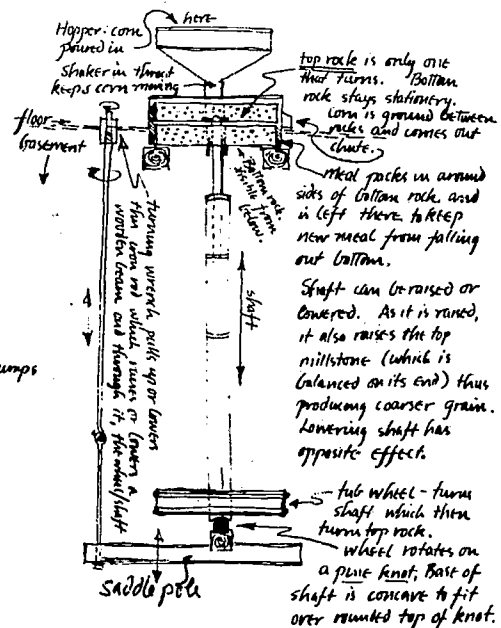 Hopper: corn
poured in
here
Shaker in throat
keeps corn moving
top rock is only one
that turns. Bottom
rock stays stationery.
Corn is ground between
rocks and comes out
chute.
floor
basement
Bottom rock
visible from
below.
meal packs in around
sides of bottom rock and
is left there to keep
new meal from falling
out bottom.
turning wrench pulls up or lowers
thin iron rod which raises or lowers a
wooden beam and through it, the wheel/shaft
shaft
Shaft can be raised or
lowered. As it is raised,
it also raises the top
millstone (which is
balanced on its end) thus
producing coarser grain.
Lowering shaft has
opposite effect.
umps
tub wheel - turns
shaft which then
turns top rock.
wheel rotates on
a pine knot. Base of
shaft is concave to fit
over rounded top of knot.
saddle pole